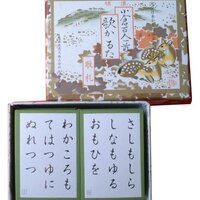 小倉百人一首
歌かるた
取札
さしもしら
しなもゆる
おもひを
わかころも
てはつゆに
ぬれつつ